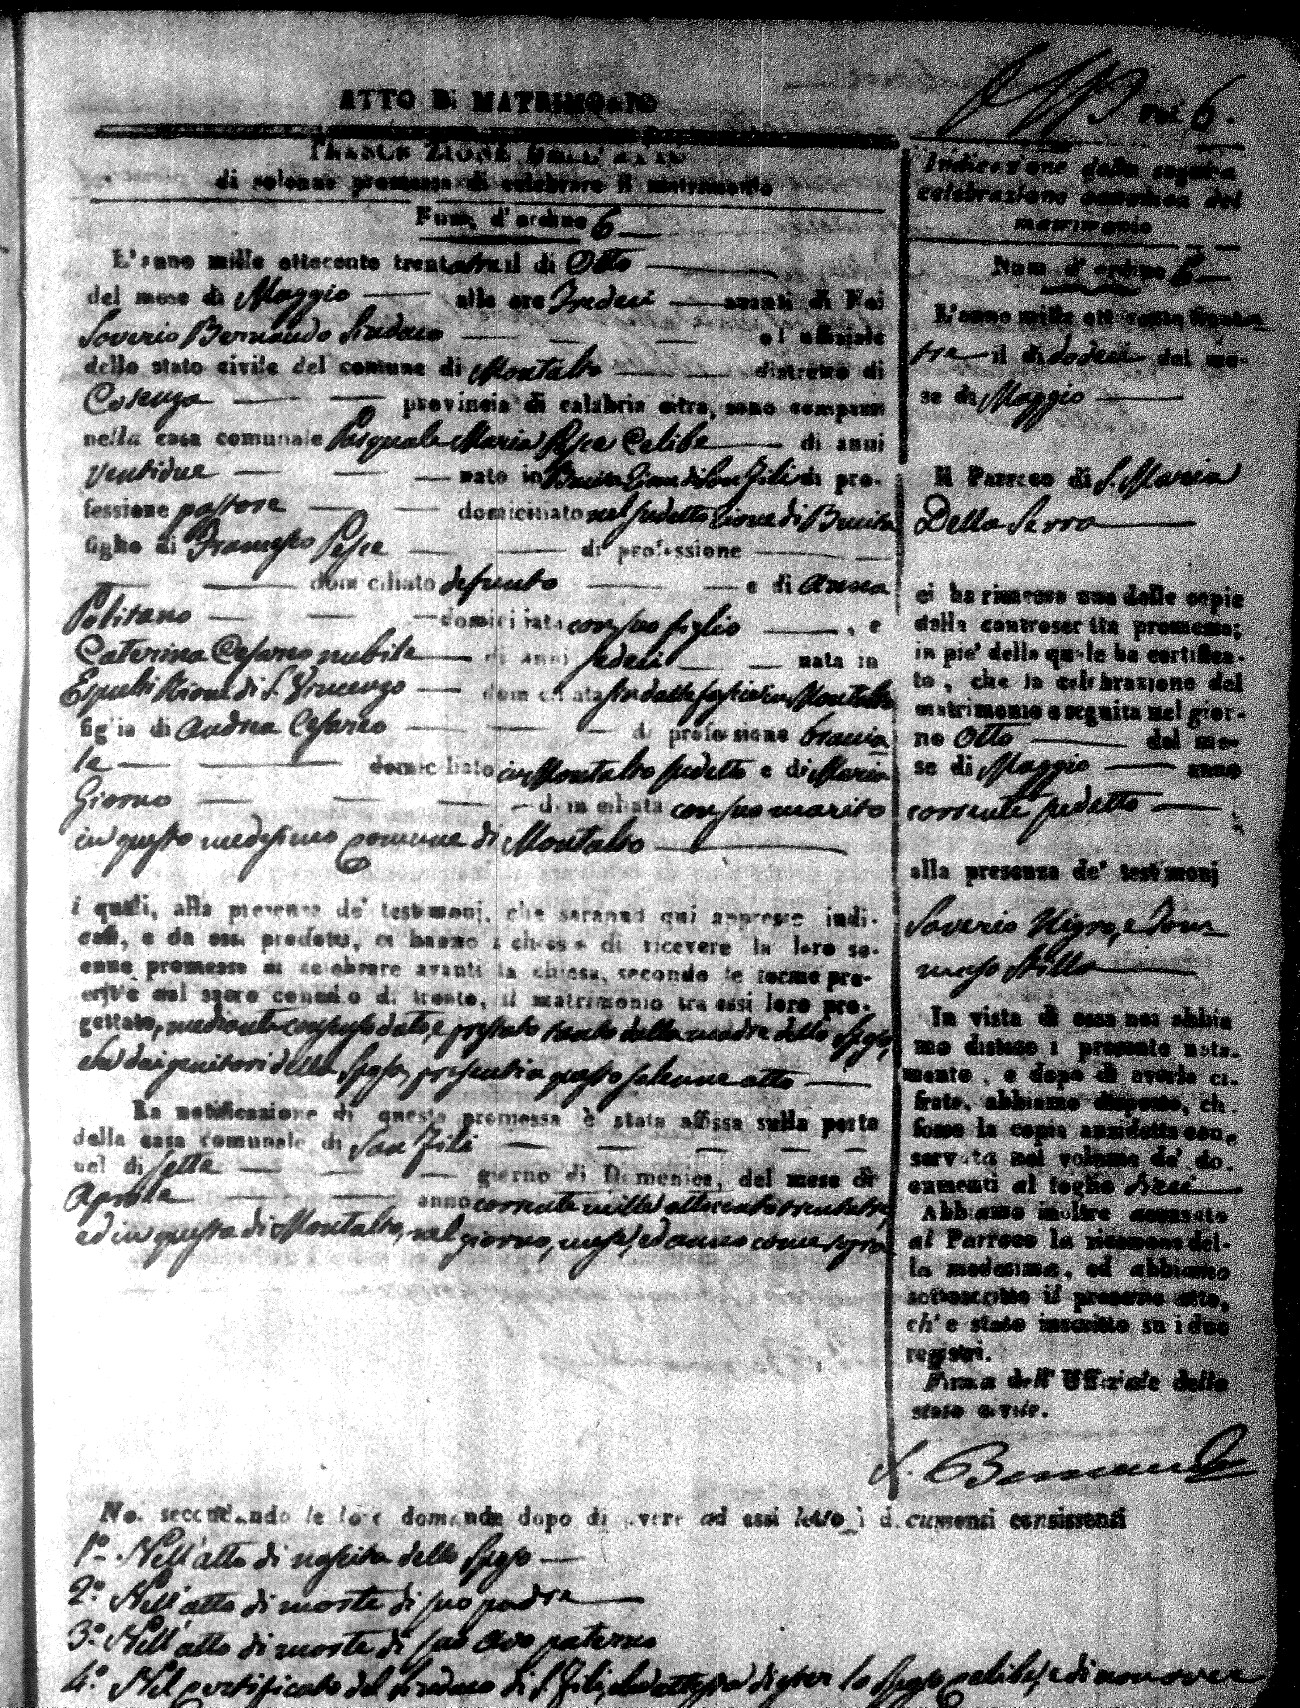 ATTO DI MATRIMONIO
di solenne promessa di celebrare il matrimonio
Num. d'ordine 6
L'anno mille ottocento trentatre il di Otto
del mese di Maggio alle ore Tredeci avanti di Noi
Saverio Bernaudo Sindaco ed uffiziale
dello stato civile del comune di Montalto distretto di
Cosenza provincia di calabria citra, sono comparsi
nella casa comunale Pasquale Maria Pesce Celibe di anni
ventidue nato in Bucita di San Fili di pro-
fessione pastore domiciliato nel sudetto di Bucita
figlio di Francesco Pesce di professione
domiciliato defunto e di Anna
Politano domiciliata con suo figlio , e
Caterina Cesareo nubile di anni sedeci nata in
Rione di S. Vincenzo domiciliata sin dalle fascie in Montalto
figlia di Andrea Cesareo di professione braccia
le domiciliato in Montalto sudetto e di Maria
Giorno domiciliata con suo marito
in questo medesimo comune di Montalto
i quali, alla presenza de' testimonj, che saranno qui appresso indi-
cati, e da essi prodotti, ci hanno richiesto di ricevere la loro so-
lenne promessa di celebrare avanti la chiesa, secondo le forme pre-
scritte dal sacro concilio di trento, il matrimonio tra essi loro pro-
gettato, mediante consenso dato, e prestato tanto dalla madre dello sposo,
che dai genitori della sposa, presenti a questo solenne atto
La notificazione di questa promessa è stata affissa sulla porta
della casa comunale di San Fili
nel di sette giorno di Domenica, del mese di
Aprile anno corrente mille ottocento trentatre,
ed in questa di Montalto, nel giorno, mese, ed anno come sopra
Noi secondando le loro domande dopo di avere ad essi letto i documenti consistenti
1.° Nell'atto di nascita dello sposo
2.° Nell'atto di morte di suo padre
3.° Nell'atto di morte di suo avo paterno
4.° Nel certificato del Sindaco di S. Fili, che attesta di esser lo sposo celibe, e di non aver
6.
Indicazione della seguita
celebrazione canonica del
matrimonio
Num. d'ordine 6
L'anno mille ottocento trenta
tre il di dodeci del me-
se di Maggio
Il Parroco di S. Maria
Della Serra
ci ha rimesso una delle copie
della controscritta promessa;
in piè della quale ha certifica-
to, che la celebrazione del
matrimonio è seguita nel gior-
no Otto del me-
se di Maggio anno
corrente sudetto
alla presenza de' testimonj
Saverio Nigro, e Tom
maso Stillo
In vista di essa noi abbia
mo disteso il presente nota-
mento, e dopo di averla ci-
frata, abbiamo disposto, che
fosse la copia anzidetta con-
servata nel volume de' do-
cumenti al foglio dieci
Abbiamo inoltre accusato
al Parroco la ricezione del-
la medesima, ed abbiamo
sottoscritto il presente atto,
ch'è stato inscritto su i due
registri.
Firma dell'Uffiziale dello
stato civile.
S. Bernaudo